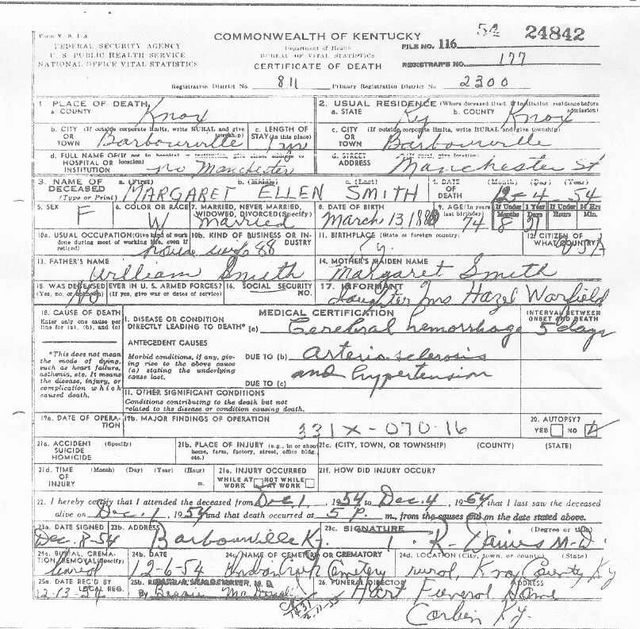 Form V. S. 1-A
FEDERAL SECURITY AGENCY
U. S. PUBLIC HEALTH SERVICE
NATIONAL OFFICE VITAL STATISTICS
COMMONWEALTH OF KENTUCKY
Department of Health
BUREAU OF VITAL STATISTICS
CERTIFICATE OF DEATH
FILE NO. 116 54 24842
REGISTRAR'S NO. 177
Registration District No. 811 Primary Registration District No. 2300
1. PLACE OF DEATH
a. COUNTY Knox
2. USUAL RESIDENCE (Where deceased lived. If institution: residence before admission)
a. STATE Ky b. COUNTY Knox
b. CITY (If outside corporate limits, write RURAL and give township) OR TOWN Barbourville
c. LENGTH OF STAY (in this place)
c. CITY (If outside corporate limits, write RURAL and give township) OR TOWN Barbourville
d. FULL NAME OF (If not in hospital or institution, give street address or location) HOSPITAL OR INSTITUTION Manchester
d. STREET ADDRESS Manchester St
3. NAME OF DECEASED (Type or Print) a. (First) b. (Middle) c. (Last)
MARGARET ELLEN SMITH
4. DATE OF DEATH (Month) (Day) (Year) 12-4 54
5. SEX F
6. COLOR OR RACE W
7. MARRIED, NEVER MARRIED, WIDOWED, DIVORCED (Specify) Married
8. DATE OF BIRTH March 13
9. AGE (In years last birthday) 74 If Under 1 Year Months 8 Days 21 If Under 24 Hrs. Hours Min.
10a. USUAL OCCUPATION (Give kind of work done during most of working life, even if retired) house wife
10b. KIND OF BUSINESS OR INDUSTRY
11. BIRTHPLACE (State or foreign country) Ky.
12. CITIZEN OF WHAT COUNTRY? USA
13. FATHER'S NAME William Smith
14. MOTHER'S MAIDEN NAME Margaret Smith
15. WAS DECEASED EVER IN U. S. ARMED FORCES? (Yes, no, or unknown) (If yes, give war or dates of service) No
16. SOCIAL SECURITY NO.
17. INFORMANT Daughter Mrs Hazel Warfield
18. CAUSE OF DEATH
Enter only one cause per line for (a), (b), and (c)
MEDICAL CERTIFICATION
INTERVAL BETWEEN ONSET AND DEATH
I. DISEASE OR CONDITION DIRECTLY LEADING TO DEATH* (a) Cerebral hemorrhage 5 days
*This does not mean the mode of dying, such as heart failure, asthenia, etc. It means the disease, injury, or complication which caused death.
ANTECEDENT CAUSES
Morbid conditions, if any, giving rise to the above cause (a) stating the underlying cause last.
DUE TO (b) Arterio sclerosis
DUE TO (c) and hypertension
II. OTHER SIGNIFICANT CONDITIONS
Conditions contributing to the death but not related to the disease or condition causing death.
19a. DATE OF OPERATION
19b. MAJOR FINDINGS OF OPERATION
331X-070-16
20. AUTOPSY?
YES NO
21a. ACCIDENT SUICIDE HOMICIDE (Specify)
21b. PLACE OF INJURY (e.g., in or about home, farm, factory, street, office bldg., etc.)
21c. (CITY, TOWN, OR TOWNSHIP) (COUNTY) (STATE)
21d. TIME OF INJURY (Month) (Day) (Year) (Hour) m.
21e. INJURY OCCURRED
WHILE AT WORK NOT WHILE AT WORK
21f. HOW DID INJURY OCCUR?
22. I hereby certify that I attended the deceased from Dec. 1, 1954 to Dec. 4, 1954 that I last saw the deceased
alive on Dec. 1, 1954 and that death occurred at 5 P. m., from the causes and on the date stated above.
23a. DATE SIGNED Dec-8-54
23b. ADDRESS Barbourville Ky.
23c. SIGNATURE (Degree or title) M.D.
24a. BURIAL, CREMATION, REMOVAL (Specify)
24b. DATE 12-6-54
24c. NAME OF CEMETERY OR CREMATORY Cemetery
24d. LOCATION (City, town, or county) (State) rural, Knox County Ky
25a. DATE REC'D BY LOCAL REG.
26. FUNERAL DIRECTOR ADDRESS
Hart Funeral Home
Corbin Ky.